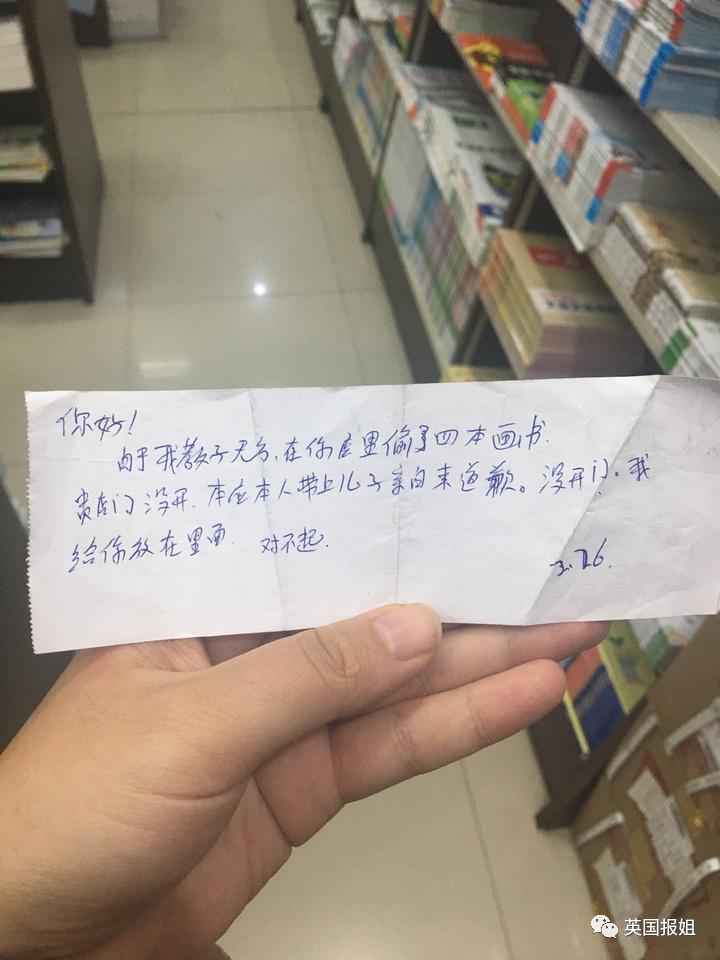 你好！
由于我教子无方，在你店里偷了四本画书.
贵店门没开. 本应本人带上儿子亲自来道歉。没开门。我
给你放在里面. 对不起.
3.26.
英国报姐